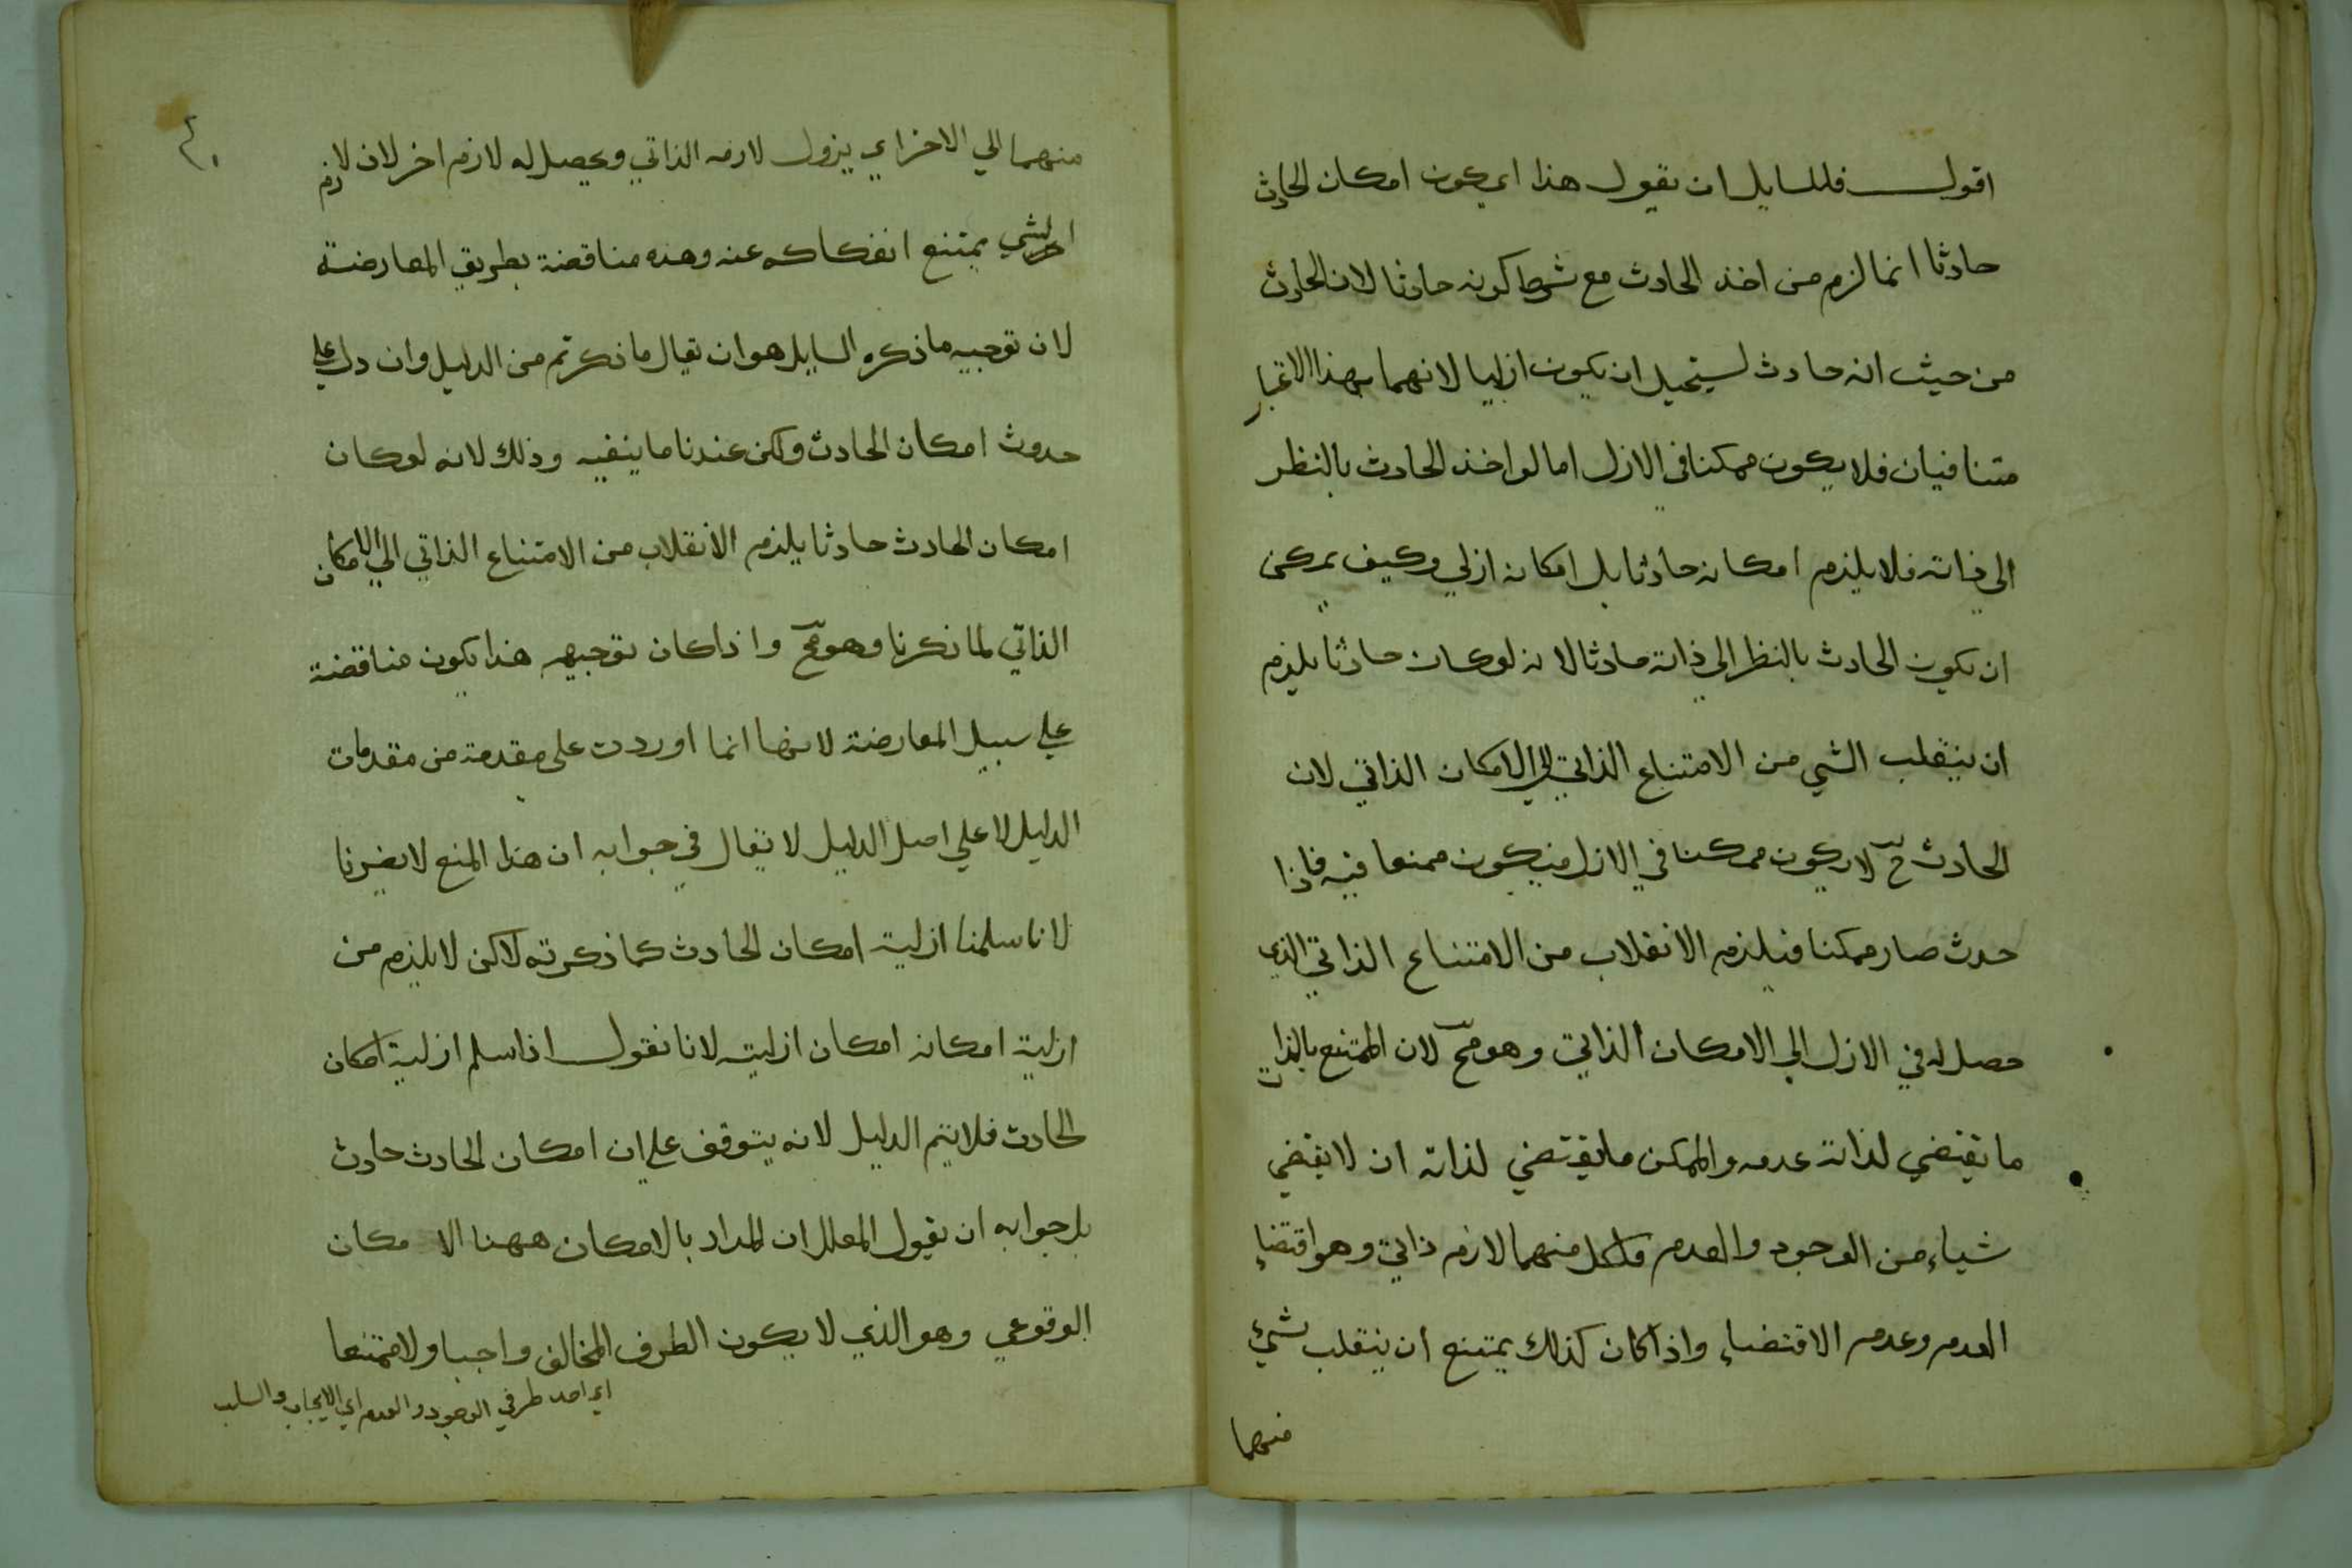 اقول فللسايل ان يقول هذا اي كون امكان الحادث
حادثا انما لزم من اخذ الحادث مع شرط كونه حادثا لان الحادث
من حيث انه حادث يستحيل ان يكون ازليا لانهما بهذا الاعتبار
متنافيان فلا يكون ممكنا في الازل اما لو اخذ الحادث بالنظر
الي ذاته فلا يلزم امكانه حادثا بل امكانه ازلي وكيف يمكن
ان يكون الحادث بالنظر الي ذاته حادثا لانه لو كان حادثا يلزم
ان ينقلب الشي من الامتناع الذاتي الي الامكان الذاتي لان
الحادث ح لا يكون ممكنا في الازل فيكون ممتنعا فيه فاذا
حدث صار ممكنا فيلزم الانقلاب من الامتناع الذاتي الذي
حصل له في الازل الي الامكان الذاتي وهو مح لان الممتنع بالذات
ما يقتضي لذاته عدمه والممكن ما يقتضي لذاته ان لا يقتضي
شياء من الوجود والعدم فلكل منهما لازم ذاتي وهو اقتضاء
العدم وعدم الاقتضاء واذا كان كذلك يمتنع ان ينقلب شيء
منهما
٤٠
منهما الي الاخر اي يزول لازمه الذاتي ويحصل له لازم اخر لان لازم
الشي يمتنع انفكاكه عنه وهذه مناقضة بطريق المعارضة
لان توجيه ما ذكره السايل هو ان يقال ما ذكرتم من الدليل وان دل علي
حدوث امكان الحادث ولكن عندنا ما ينفيه وذلك لانه لو كان
امكان الحادث حادثا يلزم الانقلاب من الامتناع الذاتي الي الامكان
الذاتي لما ذكرنا وهو مح واذا كان توجيهه هذا يكون مناقضة
علي سبيل المعارضة لانها انما اوردت علي مقدمة من مقدمات
الدليل لا علي اصل الدليل لا يقال في جوابه ان هذا المنع لا يضرنا
لانا سلمنا ازلية امكان الحادث كما ذكرته لاكن لا يلزم من
ازلية امكانه امكان ازليته لانا نقول اذا سلم ازلية امكان
الحادث فلا يتم الدليل لانه يتوقف علي ان امكان الحادث حادث
بل جوابه ان يقول المعلل ان المراد بالامكان ههنا الامكان
الوقوعي وهو الذي لا يكون الطرف المخالف واجبا ولا ممتنعا
اي احد طرفي الوجود والعدم اي الايجاب والسلب